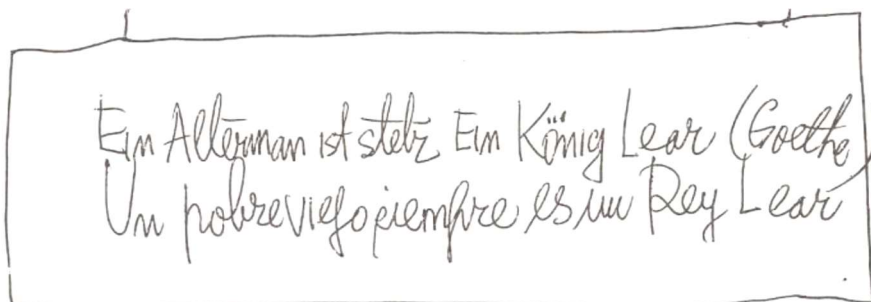 Ein Alterman ist stetz Ein König Lear (Goethe)
Un pobre viejo siempre es un Rey Lear